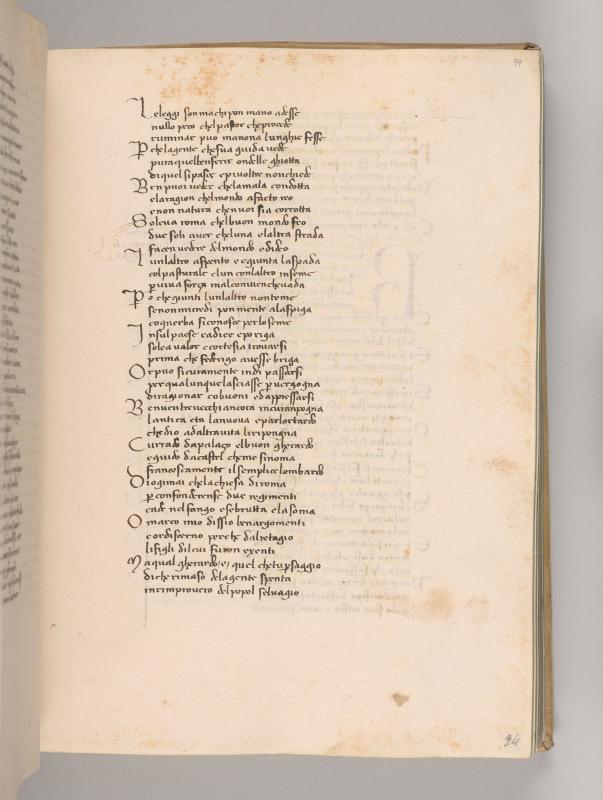 94
Le leggi son machi pon mano adesse
nullo pero chelpastor cheprocede
ruminar puo manona lunghie fesse
Perchelagente chesua guida vede
pur aquelbenferir ondelle ghiotta
diquel sipasce epiu oltre nonchiede
Ben puoi veder chelamala condotta
elaragion chelmondo afacto reo
e non natura chenvoi sia corrotta
Soleua roma chelbuon mondo feo
due soli auer cheluna elaltra strada
facen vedere delmondo e dideo
Lunlaltro aspento e egiunta laspada
colpasturale elun conlaltro inseme
per viua força mal conuien cheuada
Po che giunti lunlaltro non teme
senonmicredi pon mente alaspiga
cogn erba si conosce perloseme
Insulpaese cadice e po riga
solea valor e cortesia trouarsi
prima che fedrigo auesse briga
Or puo sicuramente indi passarsi
per qualunque lasciasse per vergogna
diragionar cobuoni odappressarsi
Ben ventre vecchi ancora incui rampogna
lantica eta lanuoua e par lor tardo
che dio adaltra vita li ripongna
Currado dapalaço elbuon gherardo
e guido dacastel che me sinoma
francescamente il semplice lombardo
Di ogimai chelachiesa di roma
per confonderense due regimenti
cade nelfango e se brutta elasoma
O marco mio dissio ben argomenti
e or discerno perche dalretagio
li figli dileui furon exenti
Ma qual gherardo e quel chetu per saggio
di che rimaso delagente spenta
inrimprouero del popol seluagio
94